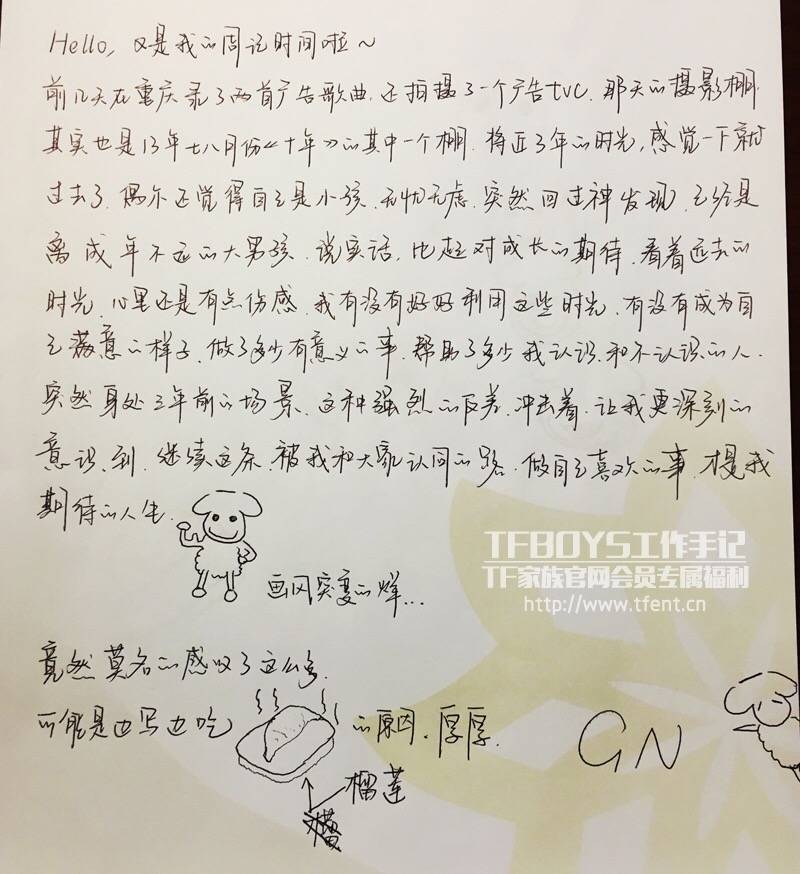 Hello, 又是我的周记时间啦～
前几天在重庆录了两首广告歌曲.还拍摄了一个广告tvc.那天的摄影棚.
其实也是13年七八月份《十年》的其中一个棚.将近3年的时光,感觉一下就
过去了.偶尔还觉得自己是小孩.无忧无虑.突然回过神发现.已经是
离成年不远的大男孩.说实话.比起对成长的期待.看着远去的
时光.心里还是有点伤感.我有没有好好利用这些时光.有没有成为自
己满意的样子.做了多少有意义的事.帮助了多少我认识.和不认识的人.
突然身处三年前的场景.这种强烈的反差.冲击着.让我更深刻的
意识.到.继续这条.被我和大家认同的路.做自己喜欢的事.才是我
期待的人生.
画风突变的烊...
TFBOYS工作手记
TF家族官网会员专属福利
http://www.tfent.cn
竟然莫名的感叹了这么多.
可能是边写边吃 的原因.厚厚.
GN
榴莲